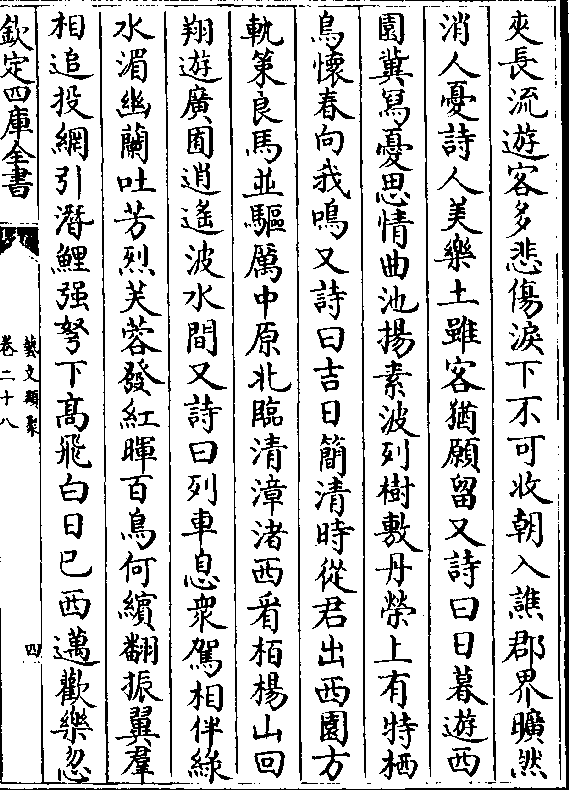 夾長流遊客多悲傷淚下不可收朝入譙郡界曠然
消人憂詩人美樂土雖客猶願留又詩曰日暮遊西
園冀冩憂思情曲池揚素波列樹敷丹榮上有特栖
鳥懷春向我鳴又詩曰吉日簡清時從君出西園方
軌策良馬並驅厲中原北臨清漳渚西看栢楊山回
翔遊廣囿逍遙波水間又詩曰列車息衆駕相伴綠
水湄幽蘭吐芳烈芙蓉發紅暉百鳥何繽翻振翼羣
相追投網引潛鯉强弩下髙飛白日已西邁歡樂忽
欽定四庫全書
藝文類聚
卷二十八
四